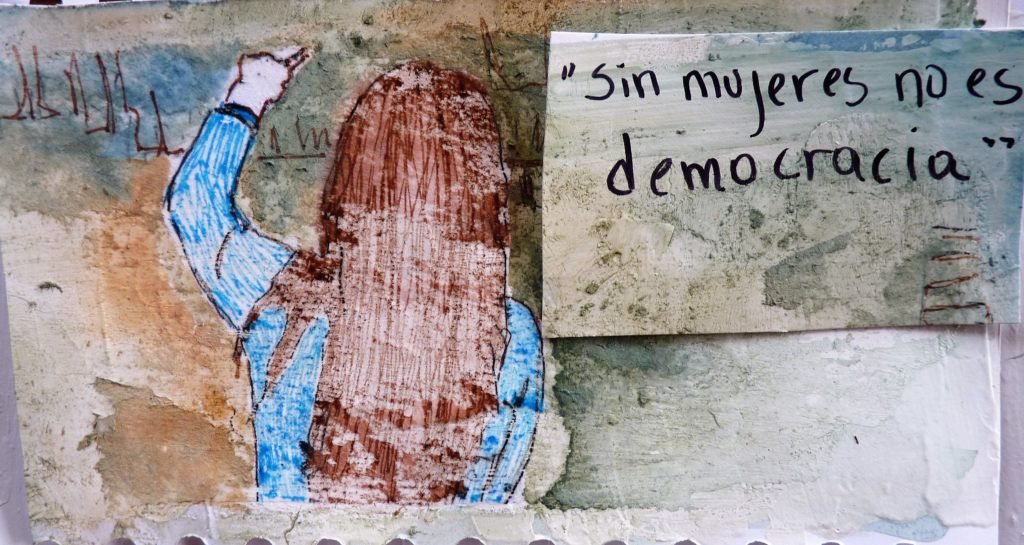 "Sin mujeres no es
democracia"